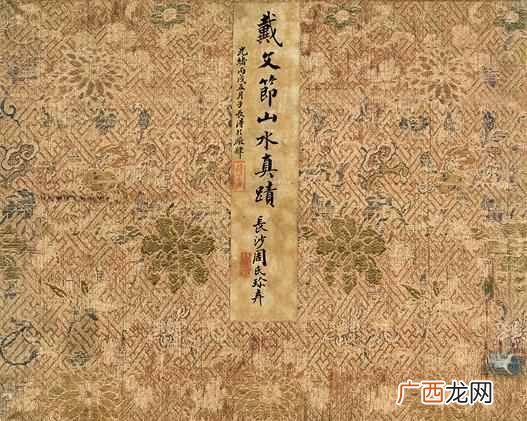 戴文節山水真蹟
長沙周氏珍弆
光緒丙戌五月于長
广西龙网